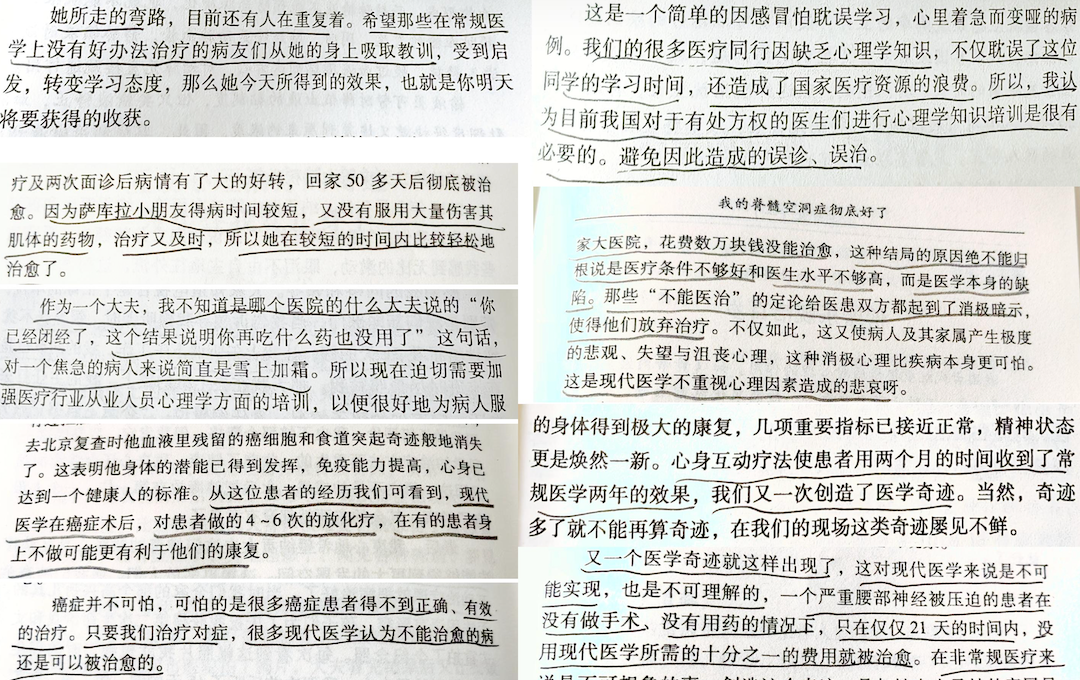 她所走的弯路，目前还有人在重复着。希望那些在常规医
学上没有好办法治疗的病友们从她的身上吸取教训，受到启
发，转变学习态度，那么她今天所得到的效果，也就是你明天
将要获得的收获。
疗及两次面诊后病情有了大的好转，回家 50 多天后彻底被治
愈。因为萨库拉小朋友得病时间较短，又没有服用大量伤害其
肌体的药物，治疗又及时，所以她在较短的时间内比较轻松地
治愈了。
作为一个大夫，我不知道是哪个医院的什么大夫说的“你
已经闭经了，这个结果说明你再吃什么药也没用了”这句话，
对一个焦急的病人来说简直是雪上加霜。所以现在迫切需要加
强医疗行业从业人员心理学方面的培训，以便很好地为病人服
去北京复查时他血液里残留的癌细胞和食道突起奇迹般地消失
了。这表明他身体的潜能已得到发挥，免疫能力提高，心身已
达到一个健康人的标准。从这位患者的经历我们可看到，现代
医学在癌症术后，对患者做的 4～6 次的放化疗，在有的患者身
上不做可能更有利于他们的康复。
癌症并不可怕，可怕的是很多癌症患者得不到正确、有效
的治疗。只要我们治疗对症，很多现代医学认为不能治愈的病
还是可以被治愈的。
这是一个简单的因感冒怕耽误学习，心里着急而变哑的病
例。我们的很多医疗同行因缺乏心理学知识，不仅耽误了这位
同学的学习时间，还造成了国家医疗资源的浪费。所以，我认
为目前我国对于有处方权的医生们进行心理学知识培训是很有
必要的。避免因此造成的误诊、误治。
我的脊髓空洞症彻底好了
家大医院，花费数万块钱没能治愈，这种结局的原因绝不能归
根说是医疗条件不够好和医生水平不够高，而是医学本身的缺
陷。那些“不能医治”的定论给医患双方都起到了消极暗示，
使得他们放弃治疗。不仅如此，这又使病人及其家属产生极度
的悲观、失望与沮丧心理，这种消极心理比疾病本身更可怕。
这是现代医学不重视心理因素造成的悲哀呀。
的身体得到极大的康复，几项重要指标已接近正常，精神状态
更是焕然一新。心身互动疗法使患者用两个月的时间收到了常
规医学两年的效果，我们又一次创造了医学奇迹。当然，奇迹
多了就不能再算奇迹，在我们的现场这类奇迹屡见不鲜。
又一个医学奇迹就这样出现了，这对现代医学来说是不可
能实现，也是不可理解的，一个严重腰部神经被压迫的患者在
没有做手术、没有用药的情况下，只在仅仅 21 天的时间内，没
用现代医学所需的十分之一的费用就被治愈。在非常规医疗来